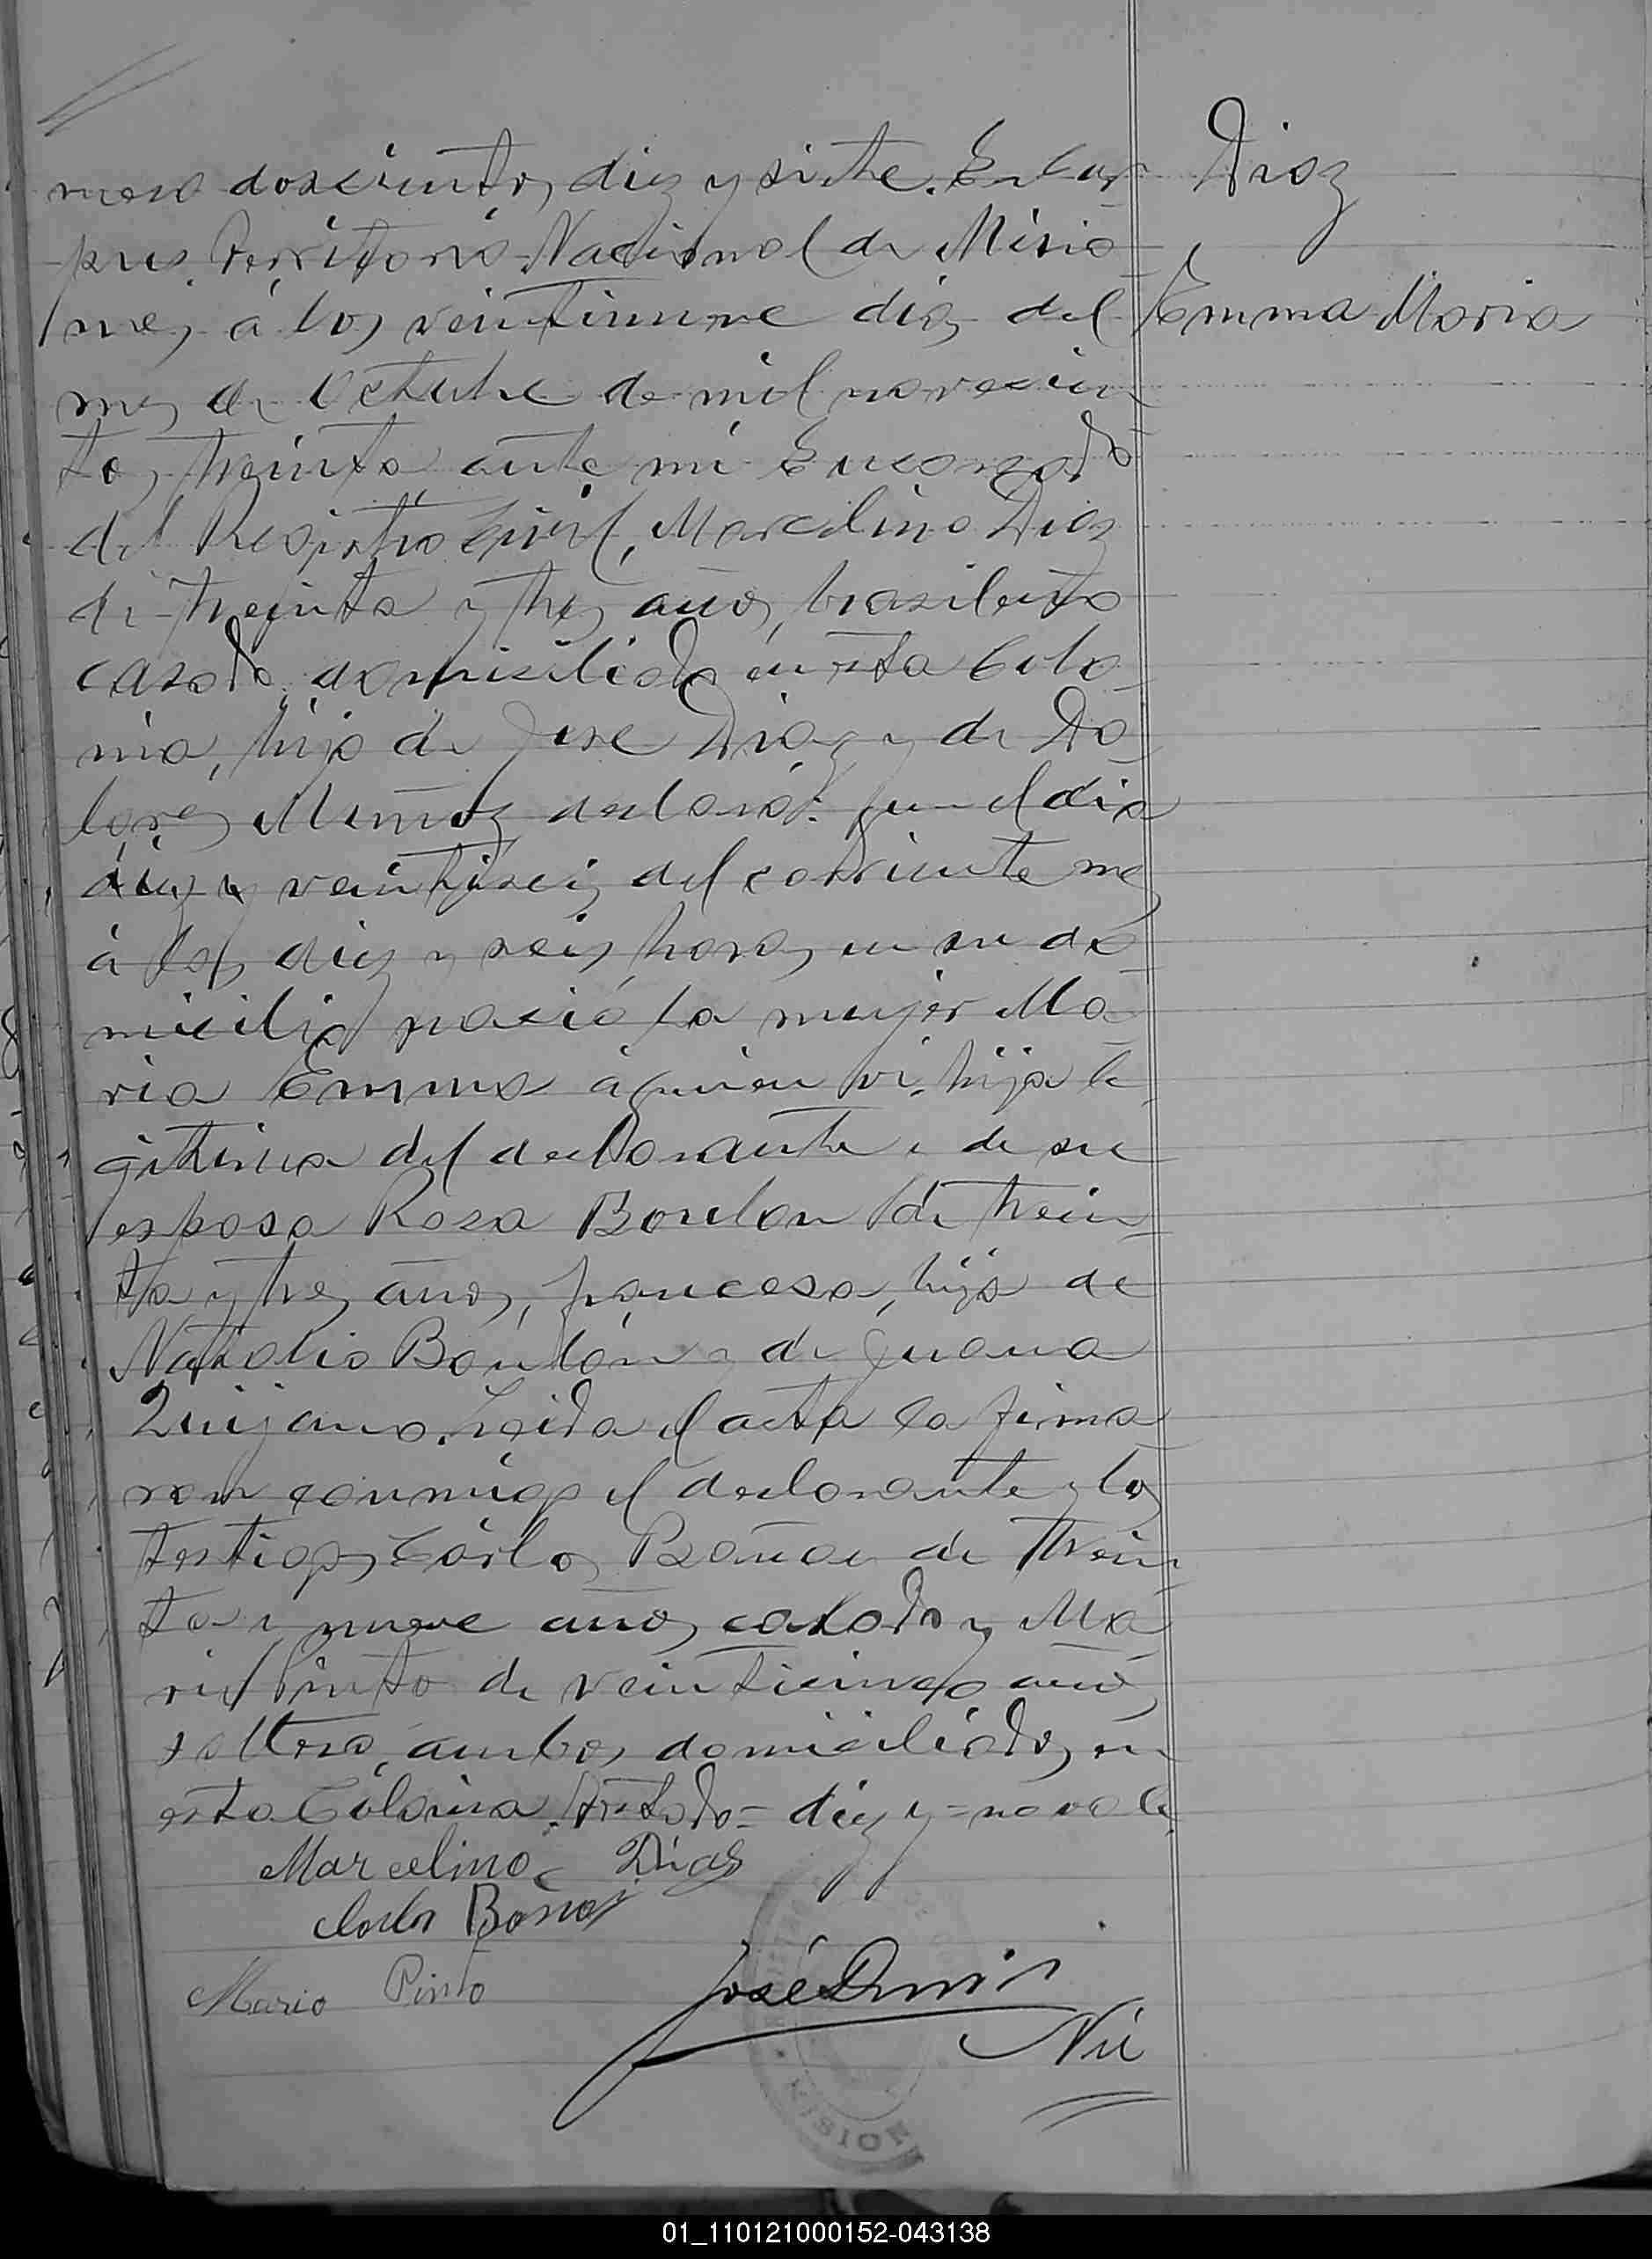 Diaz
Emma Maria
mero doscientos diez y siete. En Cor
pus Territorio Nacional de Misio
nes, á los veintinueve dias del
mes de Octubre de mil novecien
tos treinta ante mi Encargado
del Registro Civil, Marcelino Diaz
de treinta y tres años, brasileño
casado, domiciliado en esta Colo
nia, hijo de José Diaz y de Do
lores Muñoz declaró: que el dia
diez y veintiseis del corriente mes
á las diez y seis horas en su do
micilio nació la mujer Ma
ria Emma á quien vi, hija le
gitima del declarante y de su
esposa Rosa Bourlon de trein
ta y tres años, francesa, hija de
Natalio Bourlon y de Juana
Quijano. Leida el acta la firma
ron conmigo el declarante y los
testigos Cárlos de trein
ta y nueve años casado y Ma
rio Pinto de veinticinco años
soltero, ambos domiciliados en
esta Colonia. Testado = diez y = no vale
Marcelino Diaz
Carlos
Mario Pinto
José
Nú
MISIONES
01_110121000152-043138